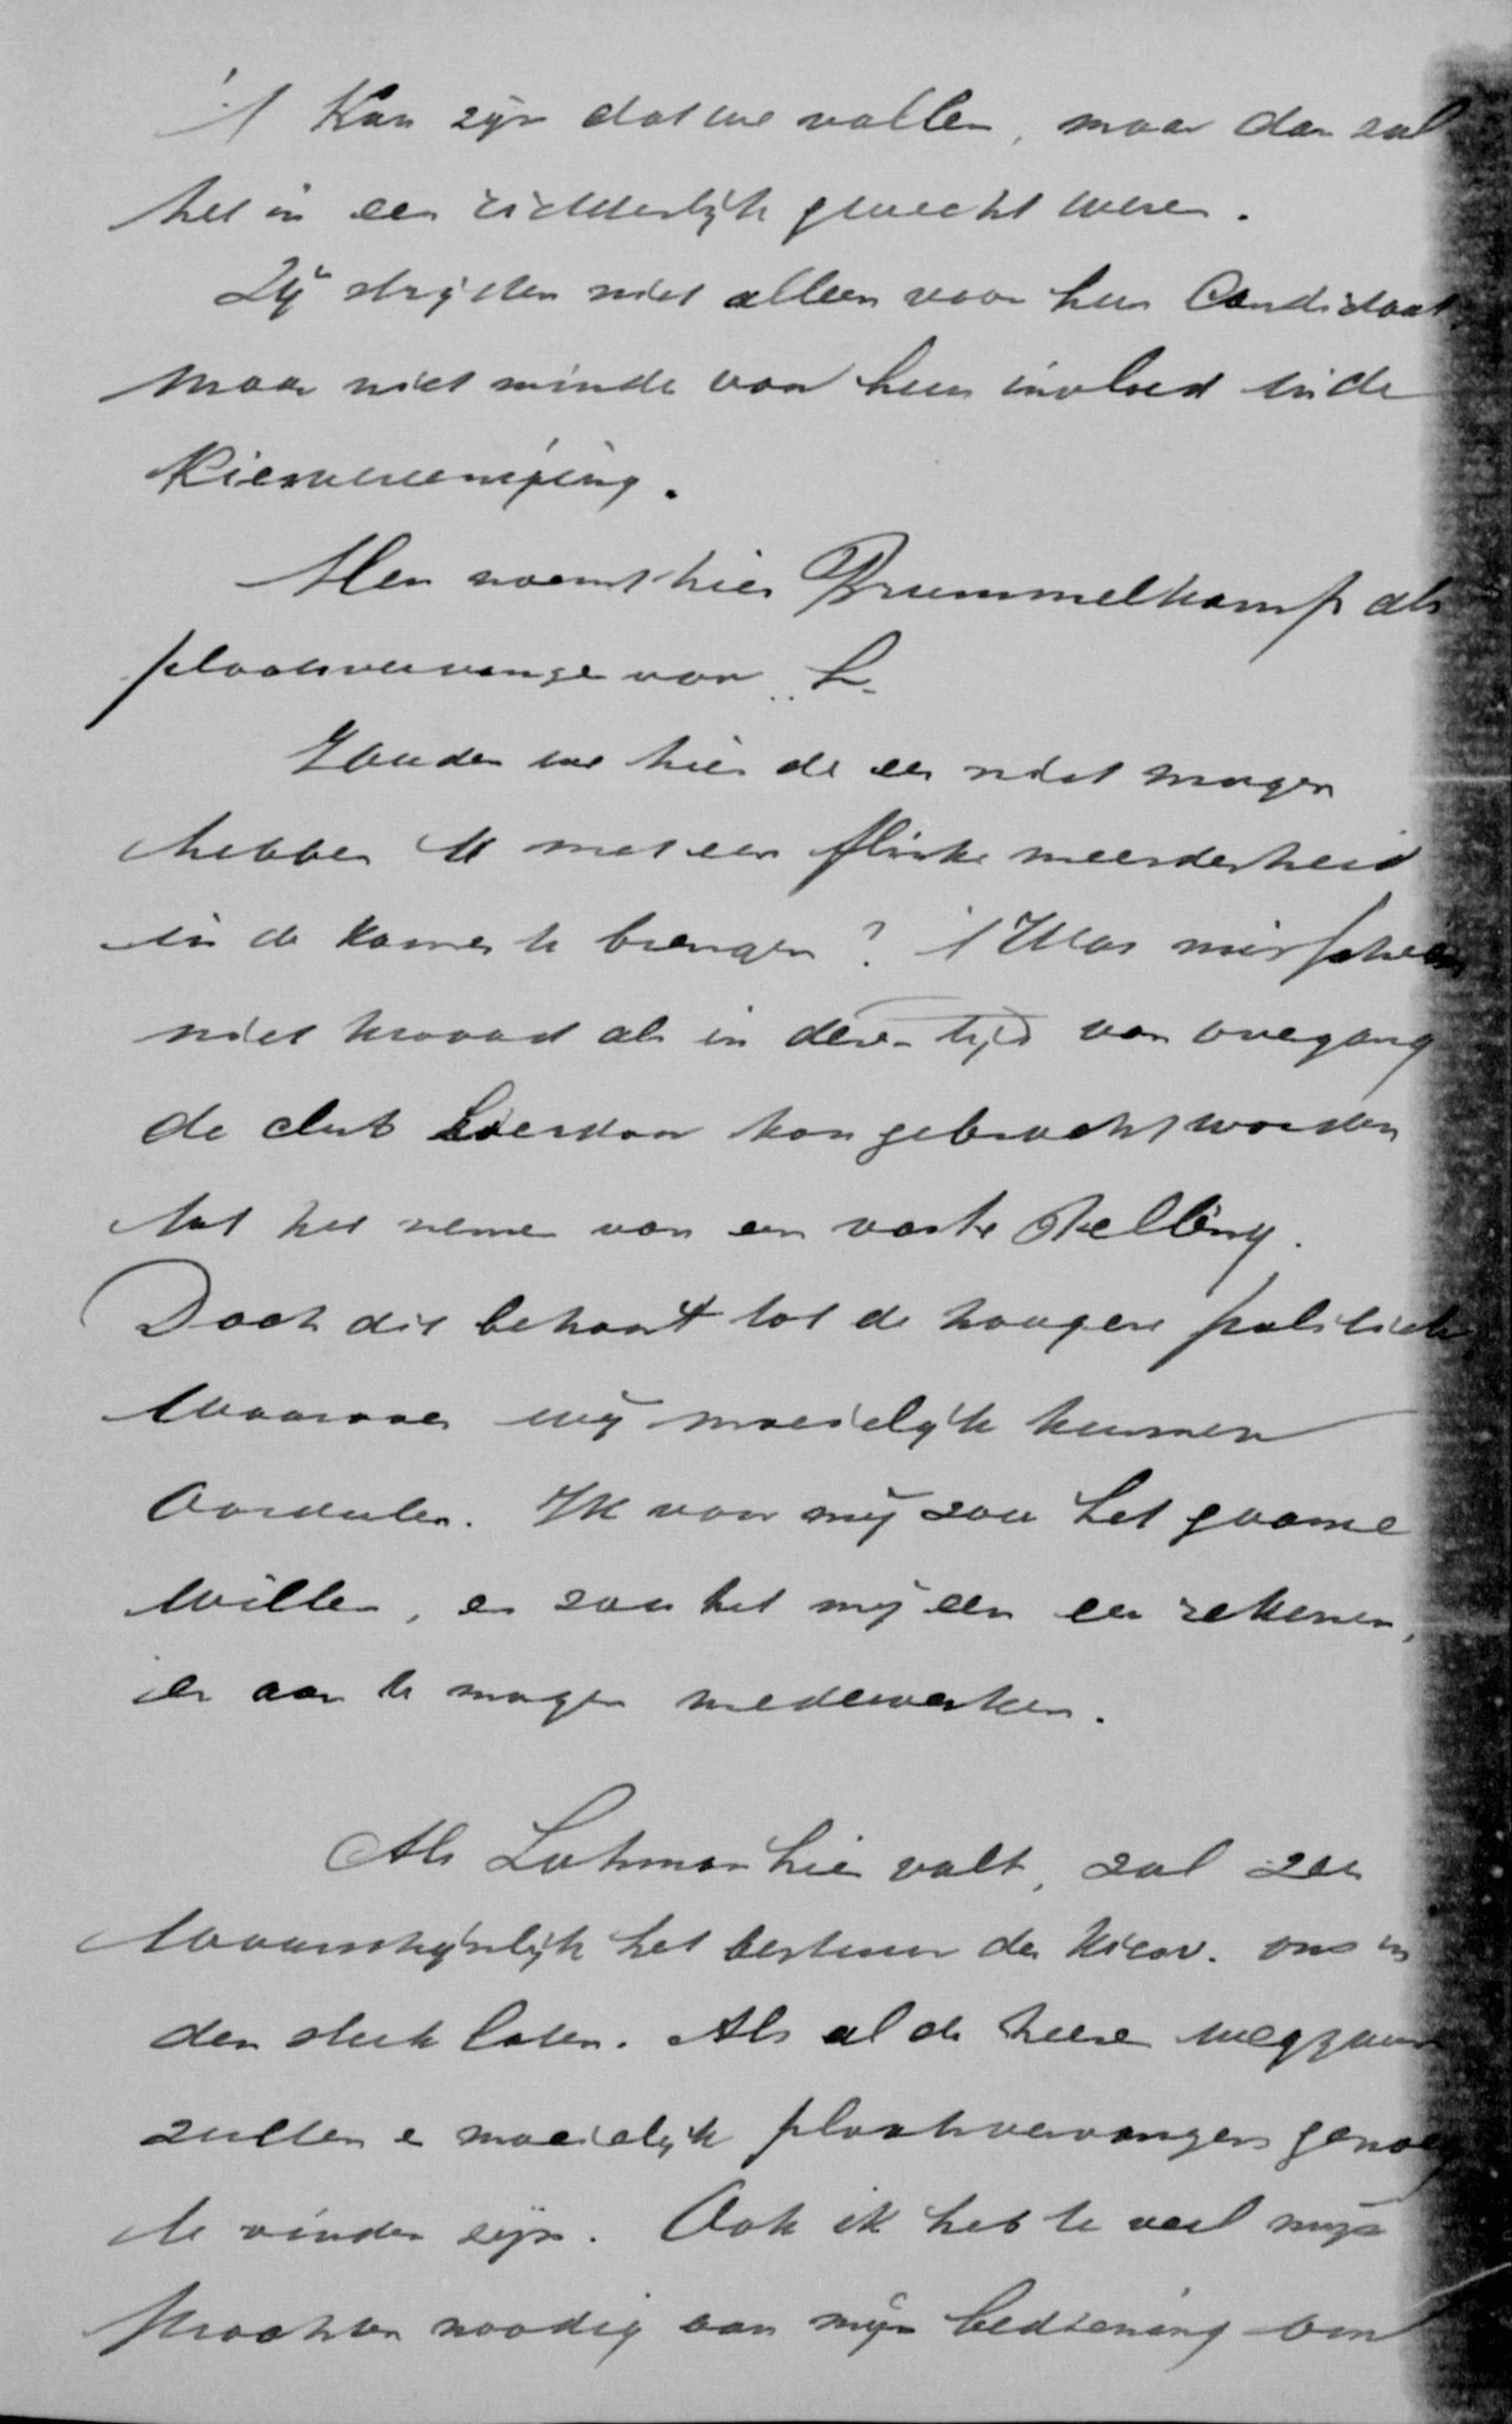 't Kan zijn dat we vallen, maar dan zal
het in een ridderlijk gevecht wezen.
Zij strijden niet alleen voor hun Candidaat,
maar niet minder voor hun invloed in de
Kiesvereeniging.
Men noemt hier Brummelkamp als
plaatsvervanger van L.
Zouden we hier de eer niet mogen
hebben U met een flinke meerderheid
in de kamer te brengen? 't Was misschien
niet kwaad als in dezen tijd van overgang
de club hierdoor kon gebracht worden
tot het nemen van een vaste stelling.
Doch dit behoort tot de hoogere politiek,
waarover wij moeielijk kunnen
oordeelen. Ik voor mij zou het gaarne
willen, en zou het mij een eer rekenen,
er aan te mogen medewerken.
Als Lohman hier valt, zal zeer
waarschijnlijk het bestuur der Kiesv. ons in
den steek laten. Als al de heeren weggaan
zullen er moeielijk plaatsvervangers genoeg
te vinden zijn. Ook ik heb te veel mijn
krachten noodig aan mijn bediening om